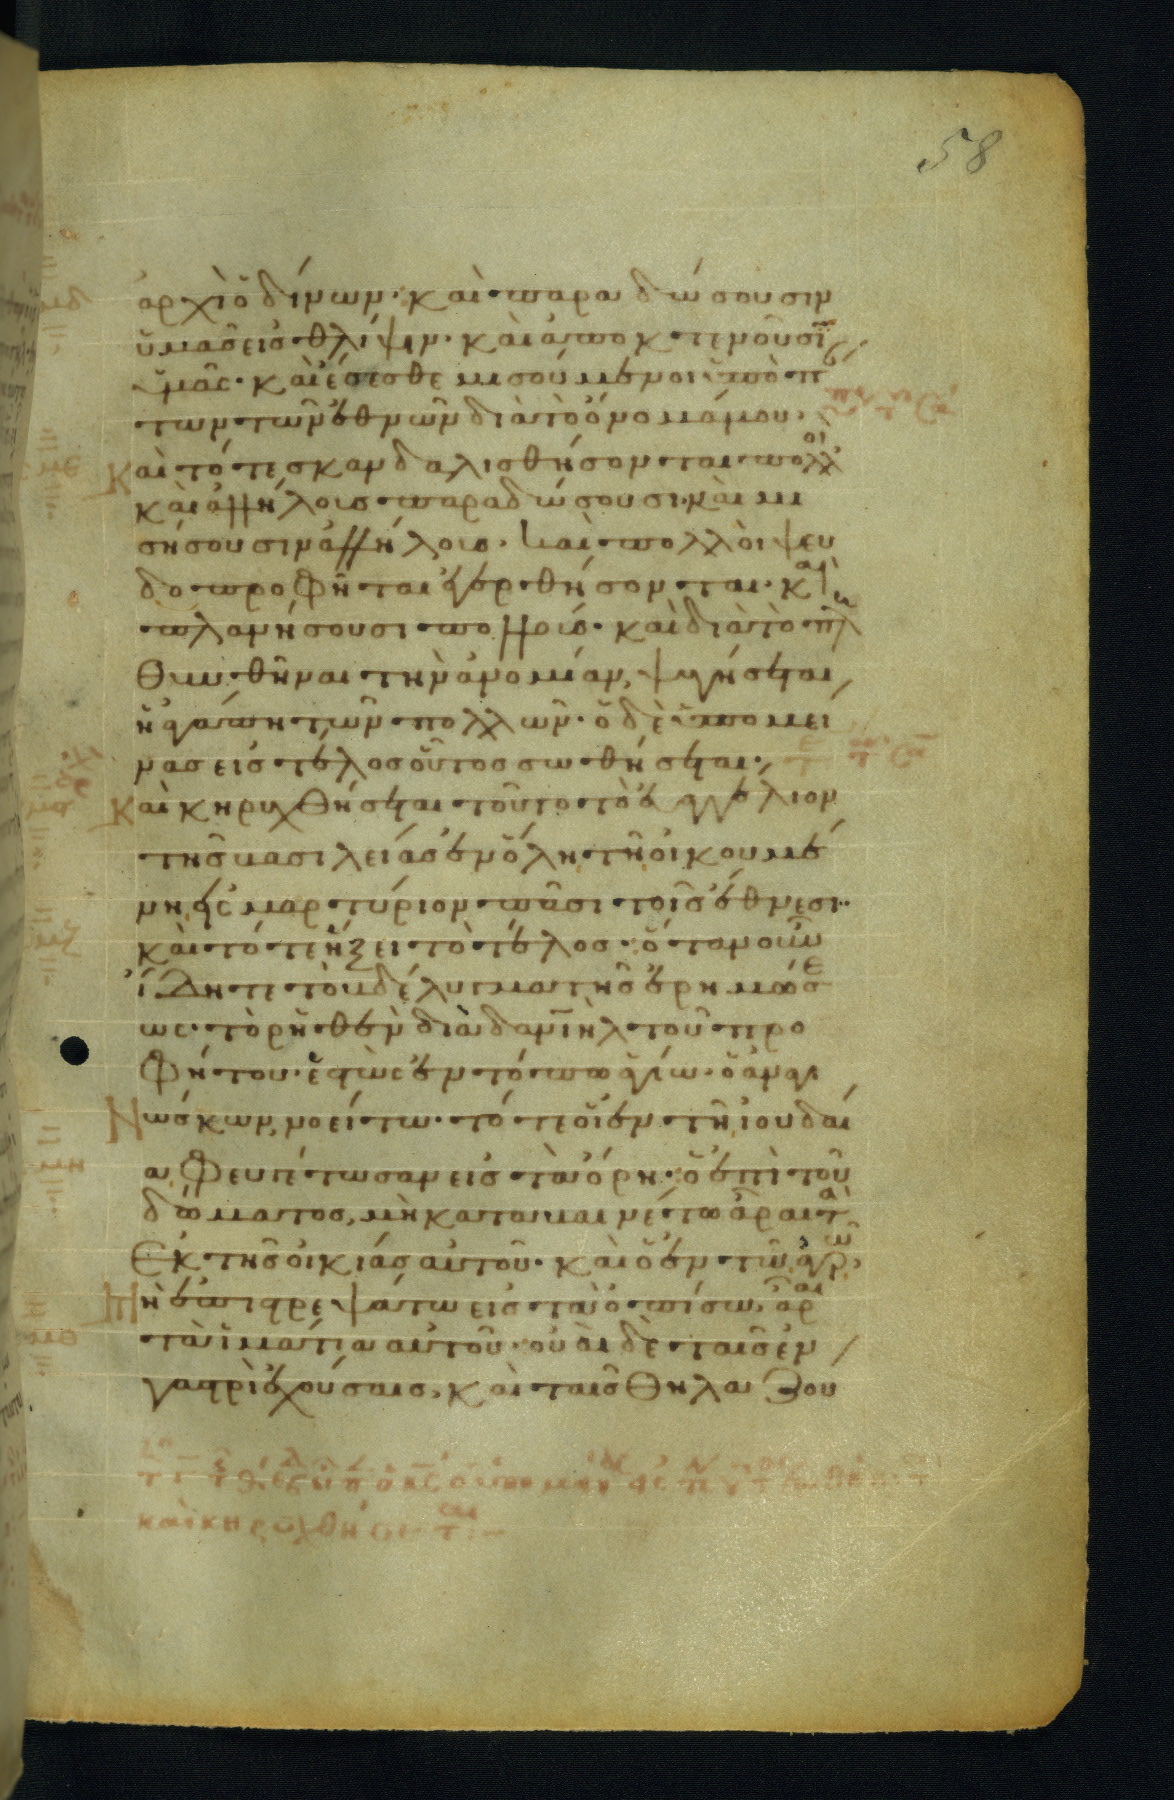 58
ἀρχὴ ὀδίνων· καὶ παραδώσουσιν
ὑμᾶς εἰς θλίψιν· καὶ ἀποκτενοῦσῖ
ὑμᾶς· καὶ ἔσεσθε μισούμενοι ὑπὸ π
των τῶν ἐθνῶν διὰ τὸ ὄνομά μου·
Και τότε σκανδαλισθήσονται πολλοὶ
καὶ ἀλλήλοις παραδώσουσι· καὶ μι
σήσουσιν ἀλλήλοις· καὶ πολλοὶ ψευ
δοπροφῆται ἐγερθήσονται· καὶ
πλανήσουσι πολλοίς· καὶ διὰ τὸ πλη
θυνθῆναι τὴν ἀνομίαν, ψυγήσεται
ἡ ἀγάπη τῶν πολλῶν· ὁ δὲ ὑπομεί
νας εἰς τέλος οὗτος σωθήσεται·
Και κηρυχθήσεται τοῦτο τὸ εὐαγγέλιον
τῆς βασιλείας ἐν ὅλη τῆ οἰκουμέ
νη εἰς μαρτύριον πᾶσι τοῖς ἔθνεσι·
καὶ τότε ἥξει τὸ τέλος· ὅταν οὖν
ἴδητε τὸ βδέλυγμα τῆς ἐρημώσε
ως· τὸ ῥηθὲν διὰ δανιὴλ τοῦ προ
φήτου· ἑστὼς ἐν τόπω ἁγίω· ὁ ἀναγι
Νώσκων, νοείτω· τότε οἱ ἐν τῆ ἰουδαί
α, φευγέτωσαν εἰς τὰ ὄρη· ὁ ἐπὶ τοῦ
δώματος, μὴ καταβαινέτω ἆραι τὰ
Ἐκ τῆς οἰκίας αὐτοῦ· καὶ ὁ ἐν τῶ ἀγρῶ,
Μὴ ἐπιστρεψάτω εἰς τὰ ὀπίσω, ἆραι
τὰ ἱμάτια αὐτοῦ· οὐαὶ δὲ ταῖς ἐν
γαστρὶ ἐχούσαις, καὶ ταῖς θηλαζου